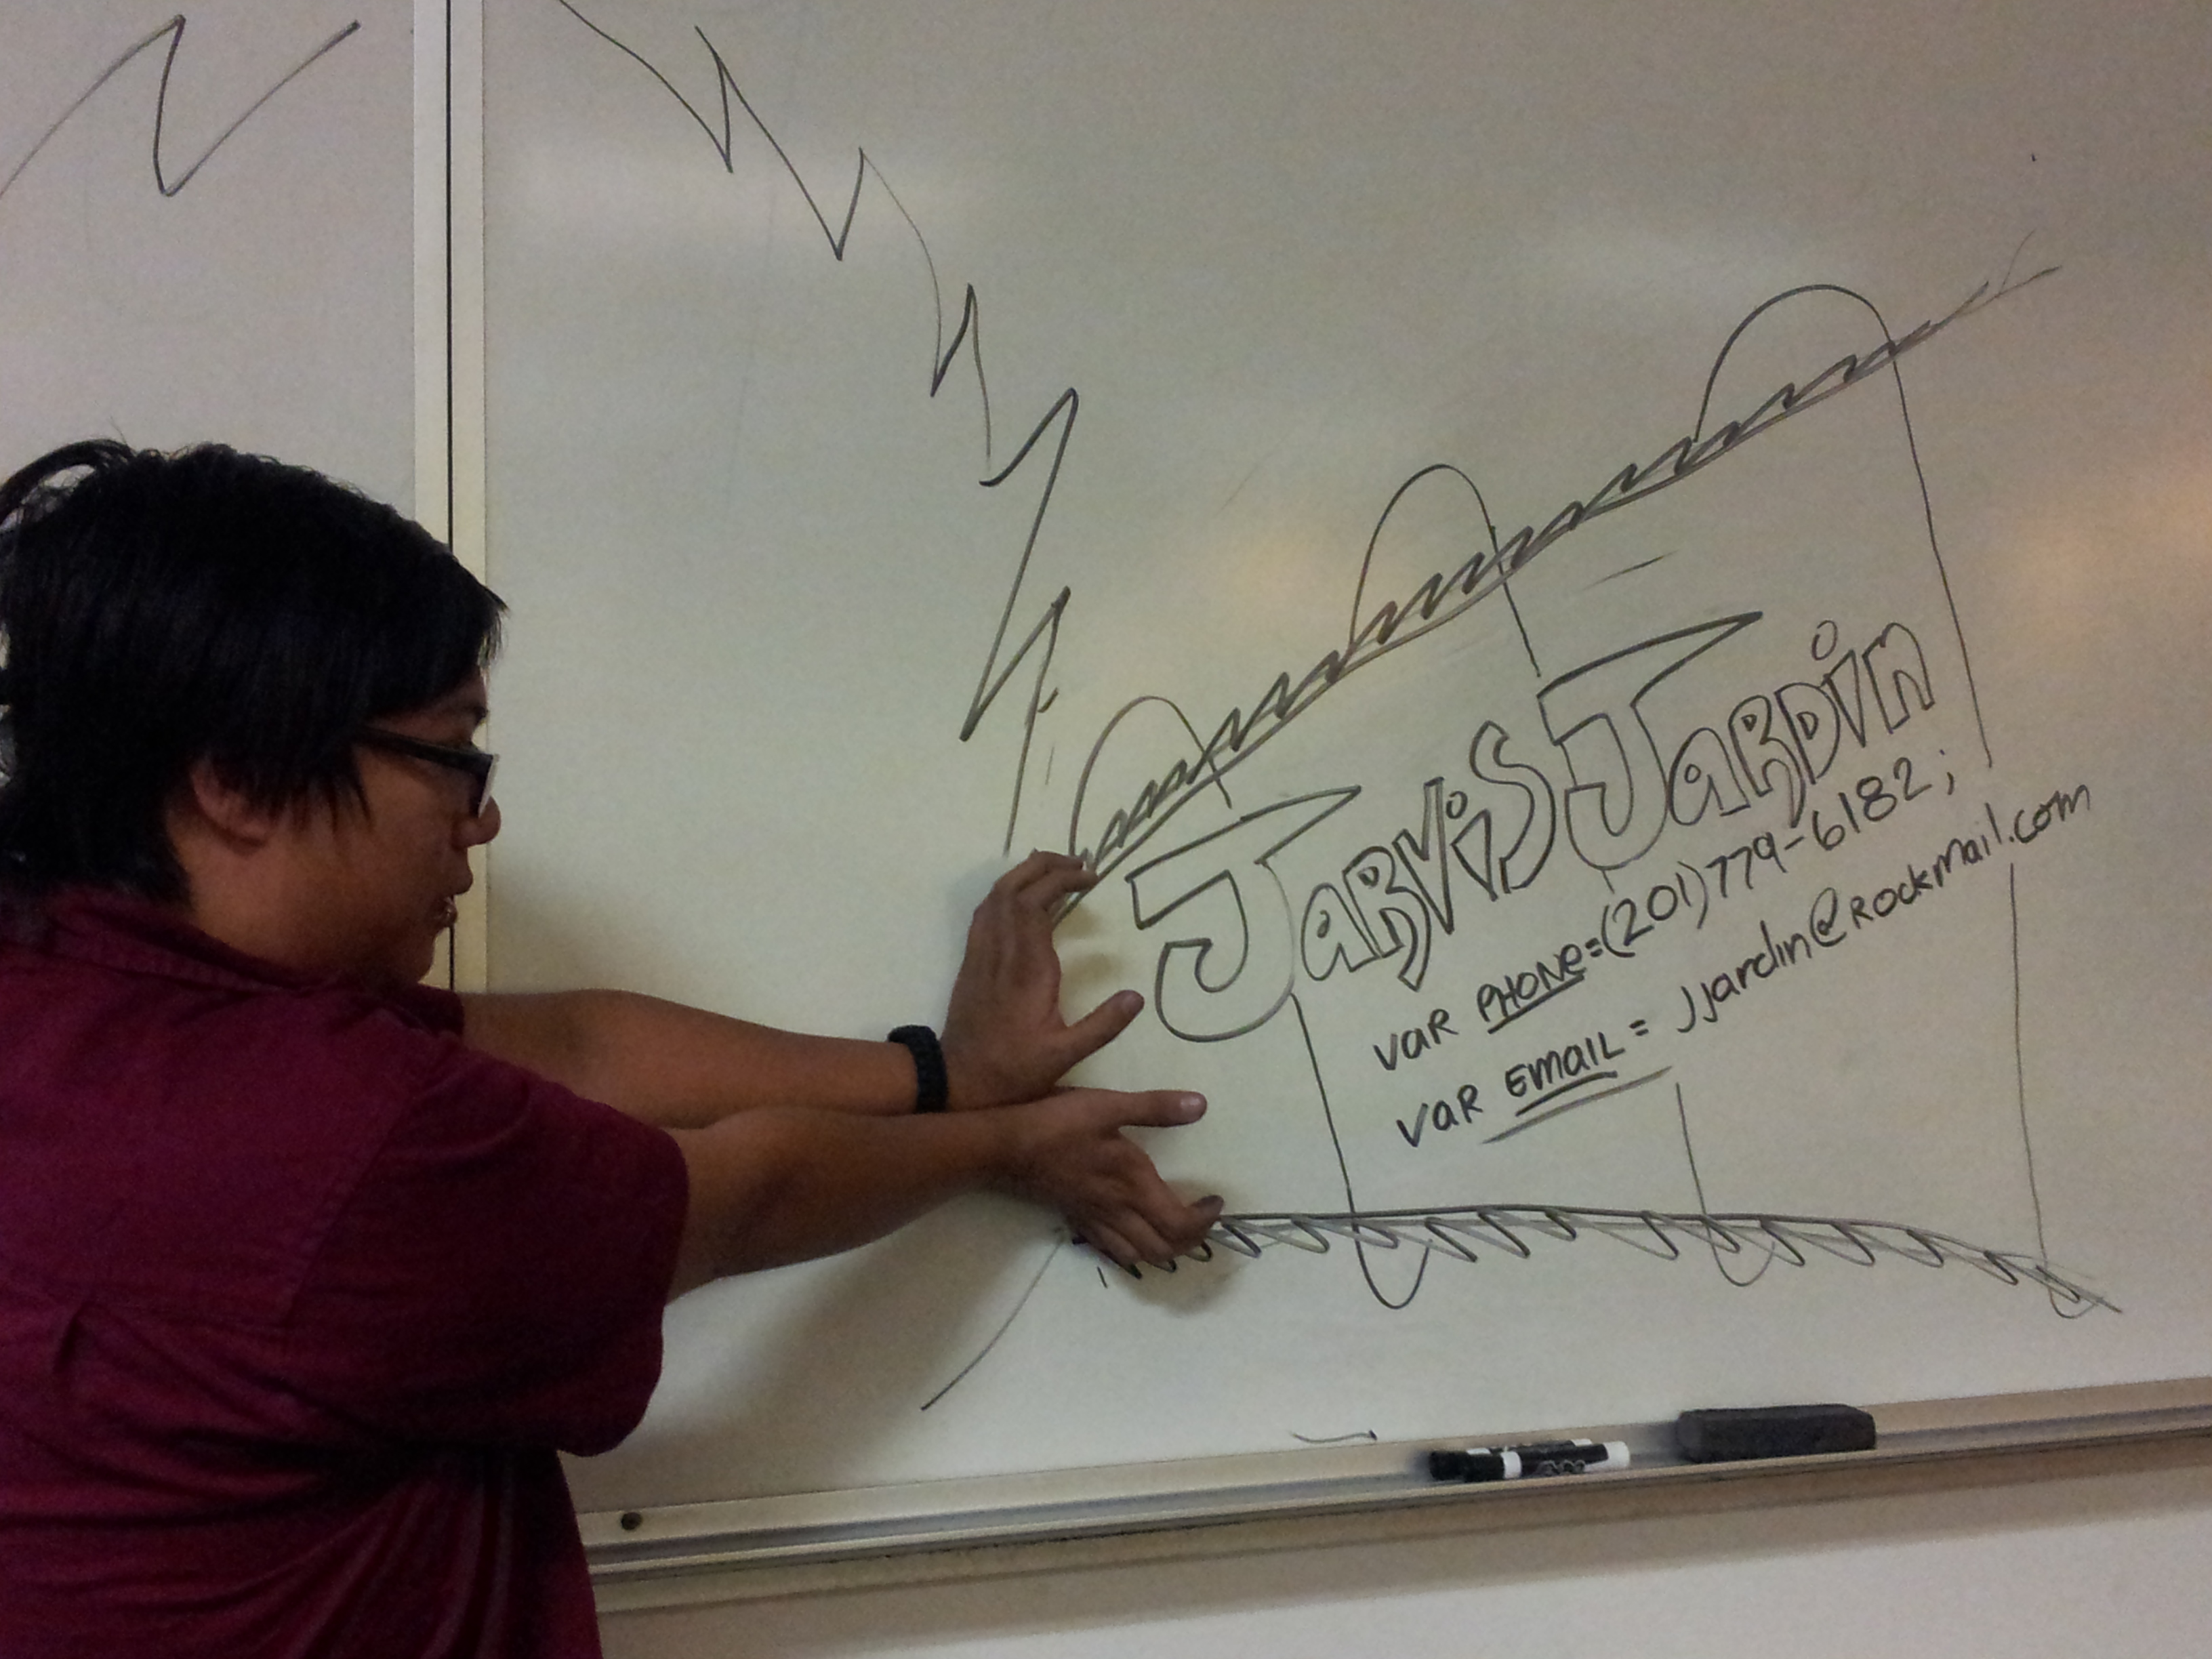 JaRViS JaRDin
vaR PHONe=(201)779-6182;
vaR EmaIL= Jjardin@Rockmail.com